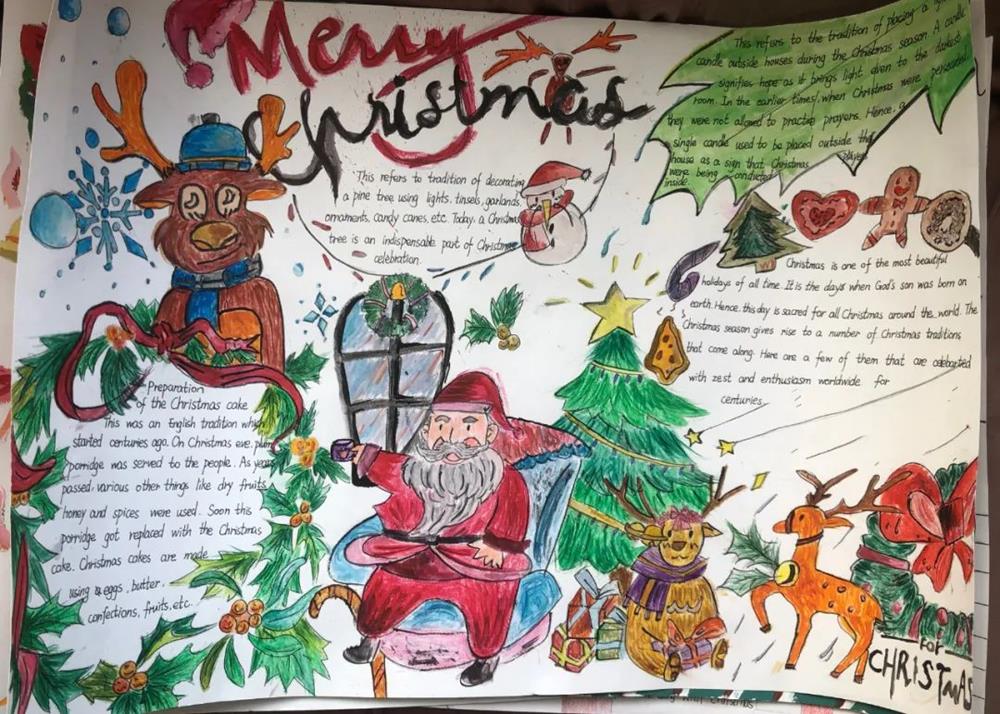 Merry
Christmas
This refers to the tradition of placing a
candle outside houses during the Christmas season. A candle
signifies hope as it brings light even to the darkest
room. In the earlier times, when Christmas were persecuted,
they were not allowed to practise prayers. Hence, a
single candle used to be placed outside the
house as a sign that Christmas prayers
were being conducted
inside.
This refers to tradition of decorating
a pine tree using lights, tinsels, garlands,
ornaments, candy canes, etc. Today, a Christmas
tree is an indispensable part of Christmas
celebration.
Christmas is one of the most beautiful
holidays of all time. It is the days when God's son was born on
earth. Hence, this day is sacred for all Christmas around the world. The
Christmas season gives rise to a number of Christmas traditions
that come along. Here are a few of them that are celebrated
with zest and enthusiasm worldwide for
centuries.
Preparation
of the Christmas cake
This was an English tradition which
started centuries ago. On Christmas eve, plum
porridge was served to the people. As years
passed, various other things like dry fruits,
honey and spices were used. Soon this
porridge got replaced with the Christmas
cake. Christmas cakes are made
using eggs, butter,
confections, fruits, etc.
for
CHRISTmAS